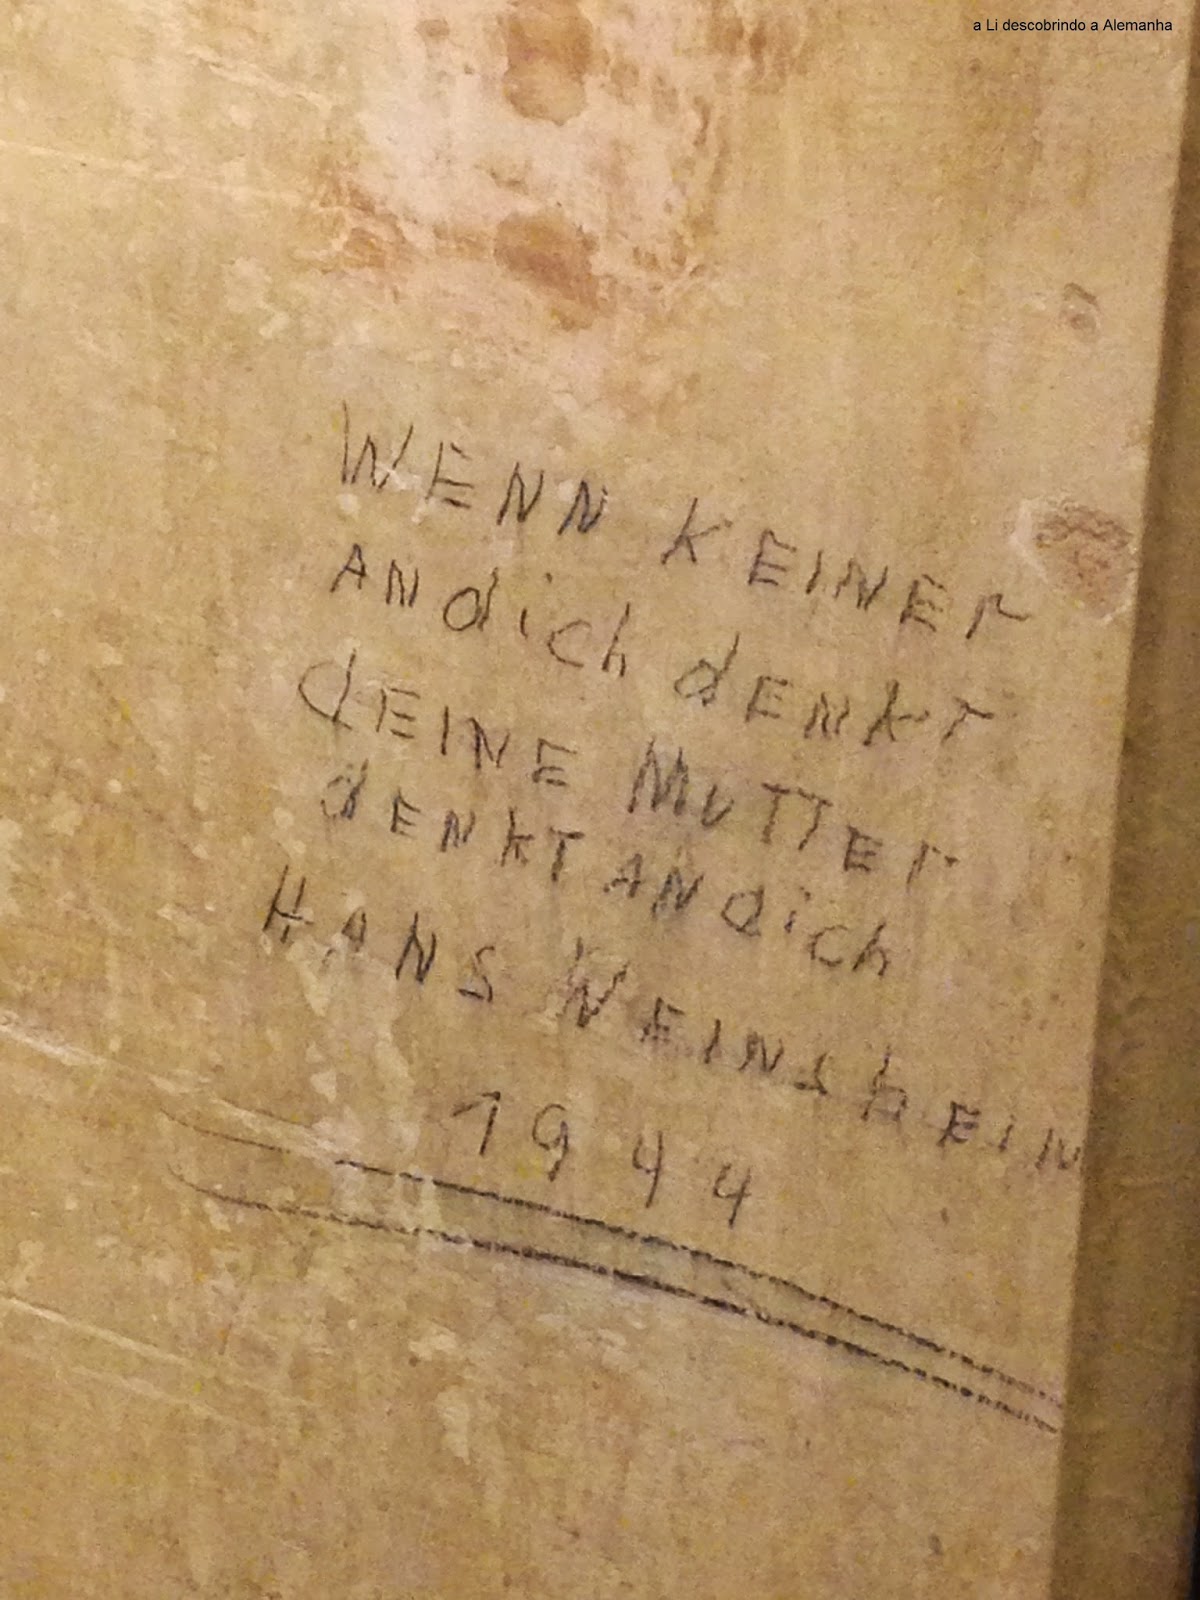 a Li descobrindo a Alemanha
WENN KEINER
AN dich dENKT
dEINE MUTTER
dENKT AN dich
HANS WEINSHEIN
1944